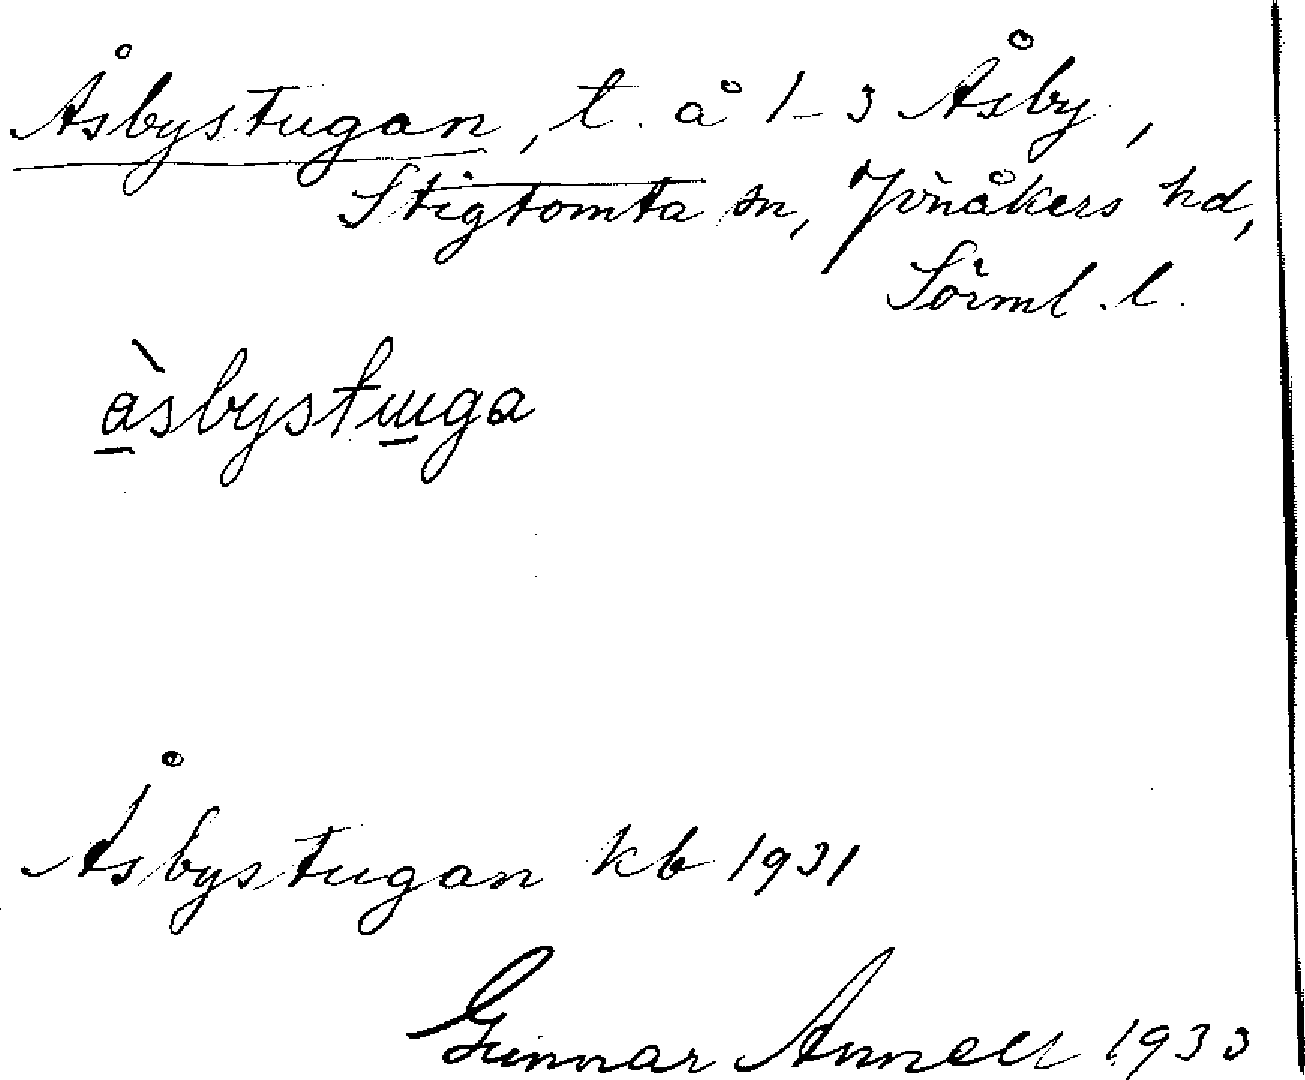 Åsbystugan, t. å 1-3 Åsby,
Stigtomta sn, Jönåkers hd,
Sörml. l.
à̲sbystu̲ga
Åsbystugan kb 1931
Gunnar Annell 1933